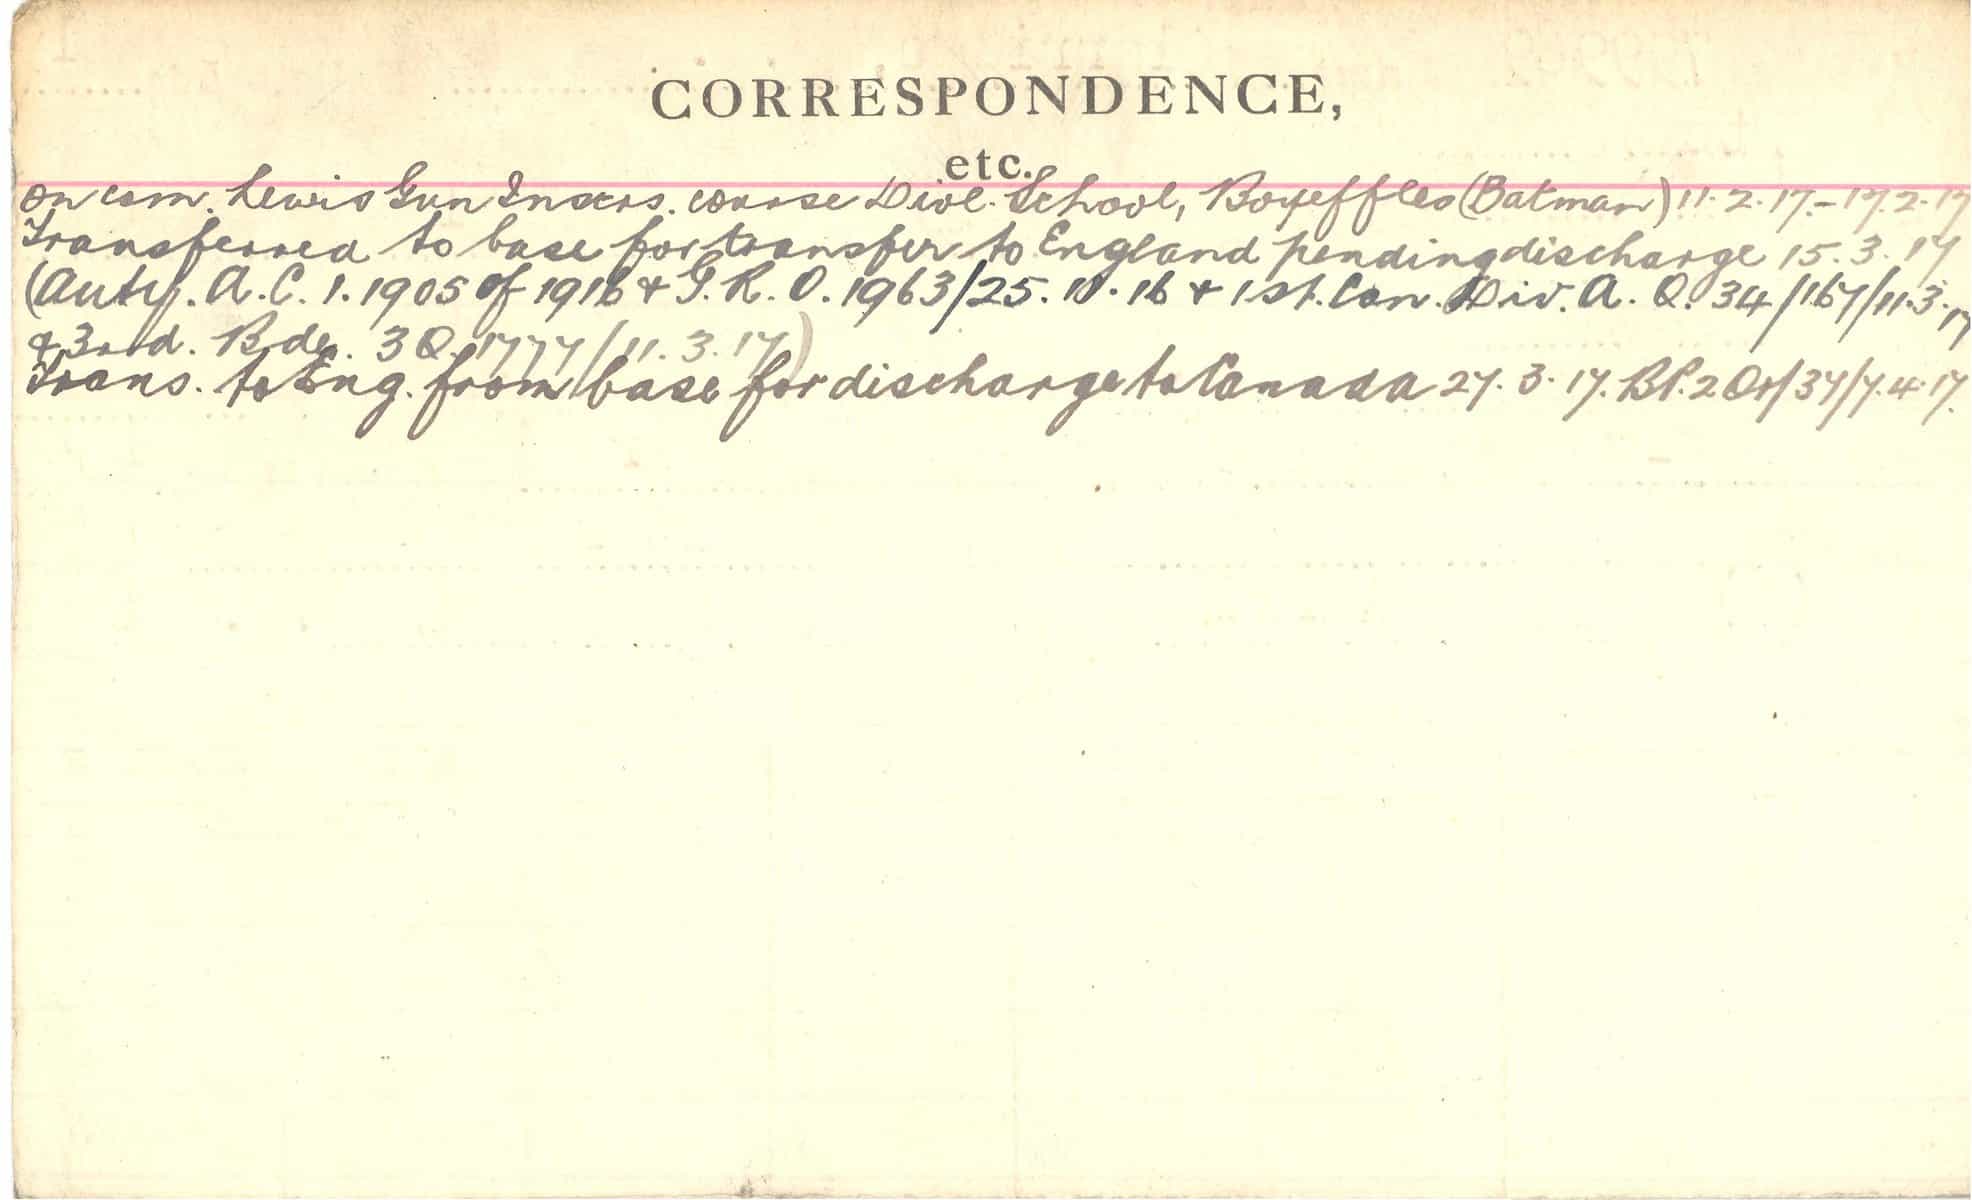 CORRESPONDENCE,
etc.
on com. Lewis Gun Instrs. course Divl. School, Boyeffles (Batman) 11.2.17.-17.2.17
Transferred to base for transfer to England pending discharge 15.3.17
(Auty. A.C.1.1905 of 1916 & G.R.O.1963/25.11.16 & 1st. Can. Div. A.Q. 34/167/11.3.17
& 3rd. Bde. 3Q.1777/11.3.17)
Trans. to Eng. from base for discharge to Canada 27.3.17. Bt. 2 Or/37/7.4.17.